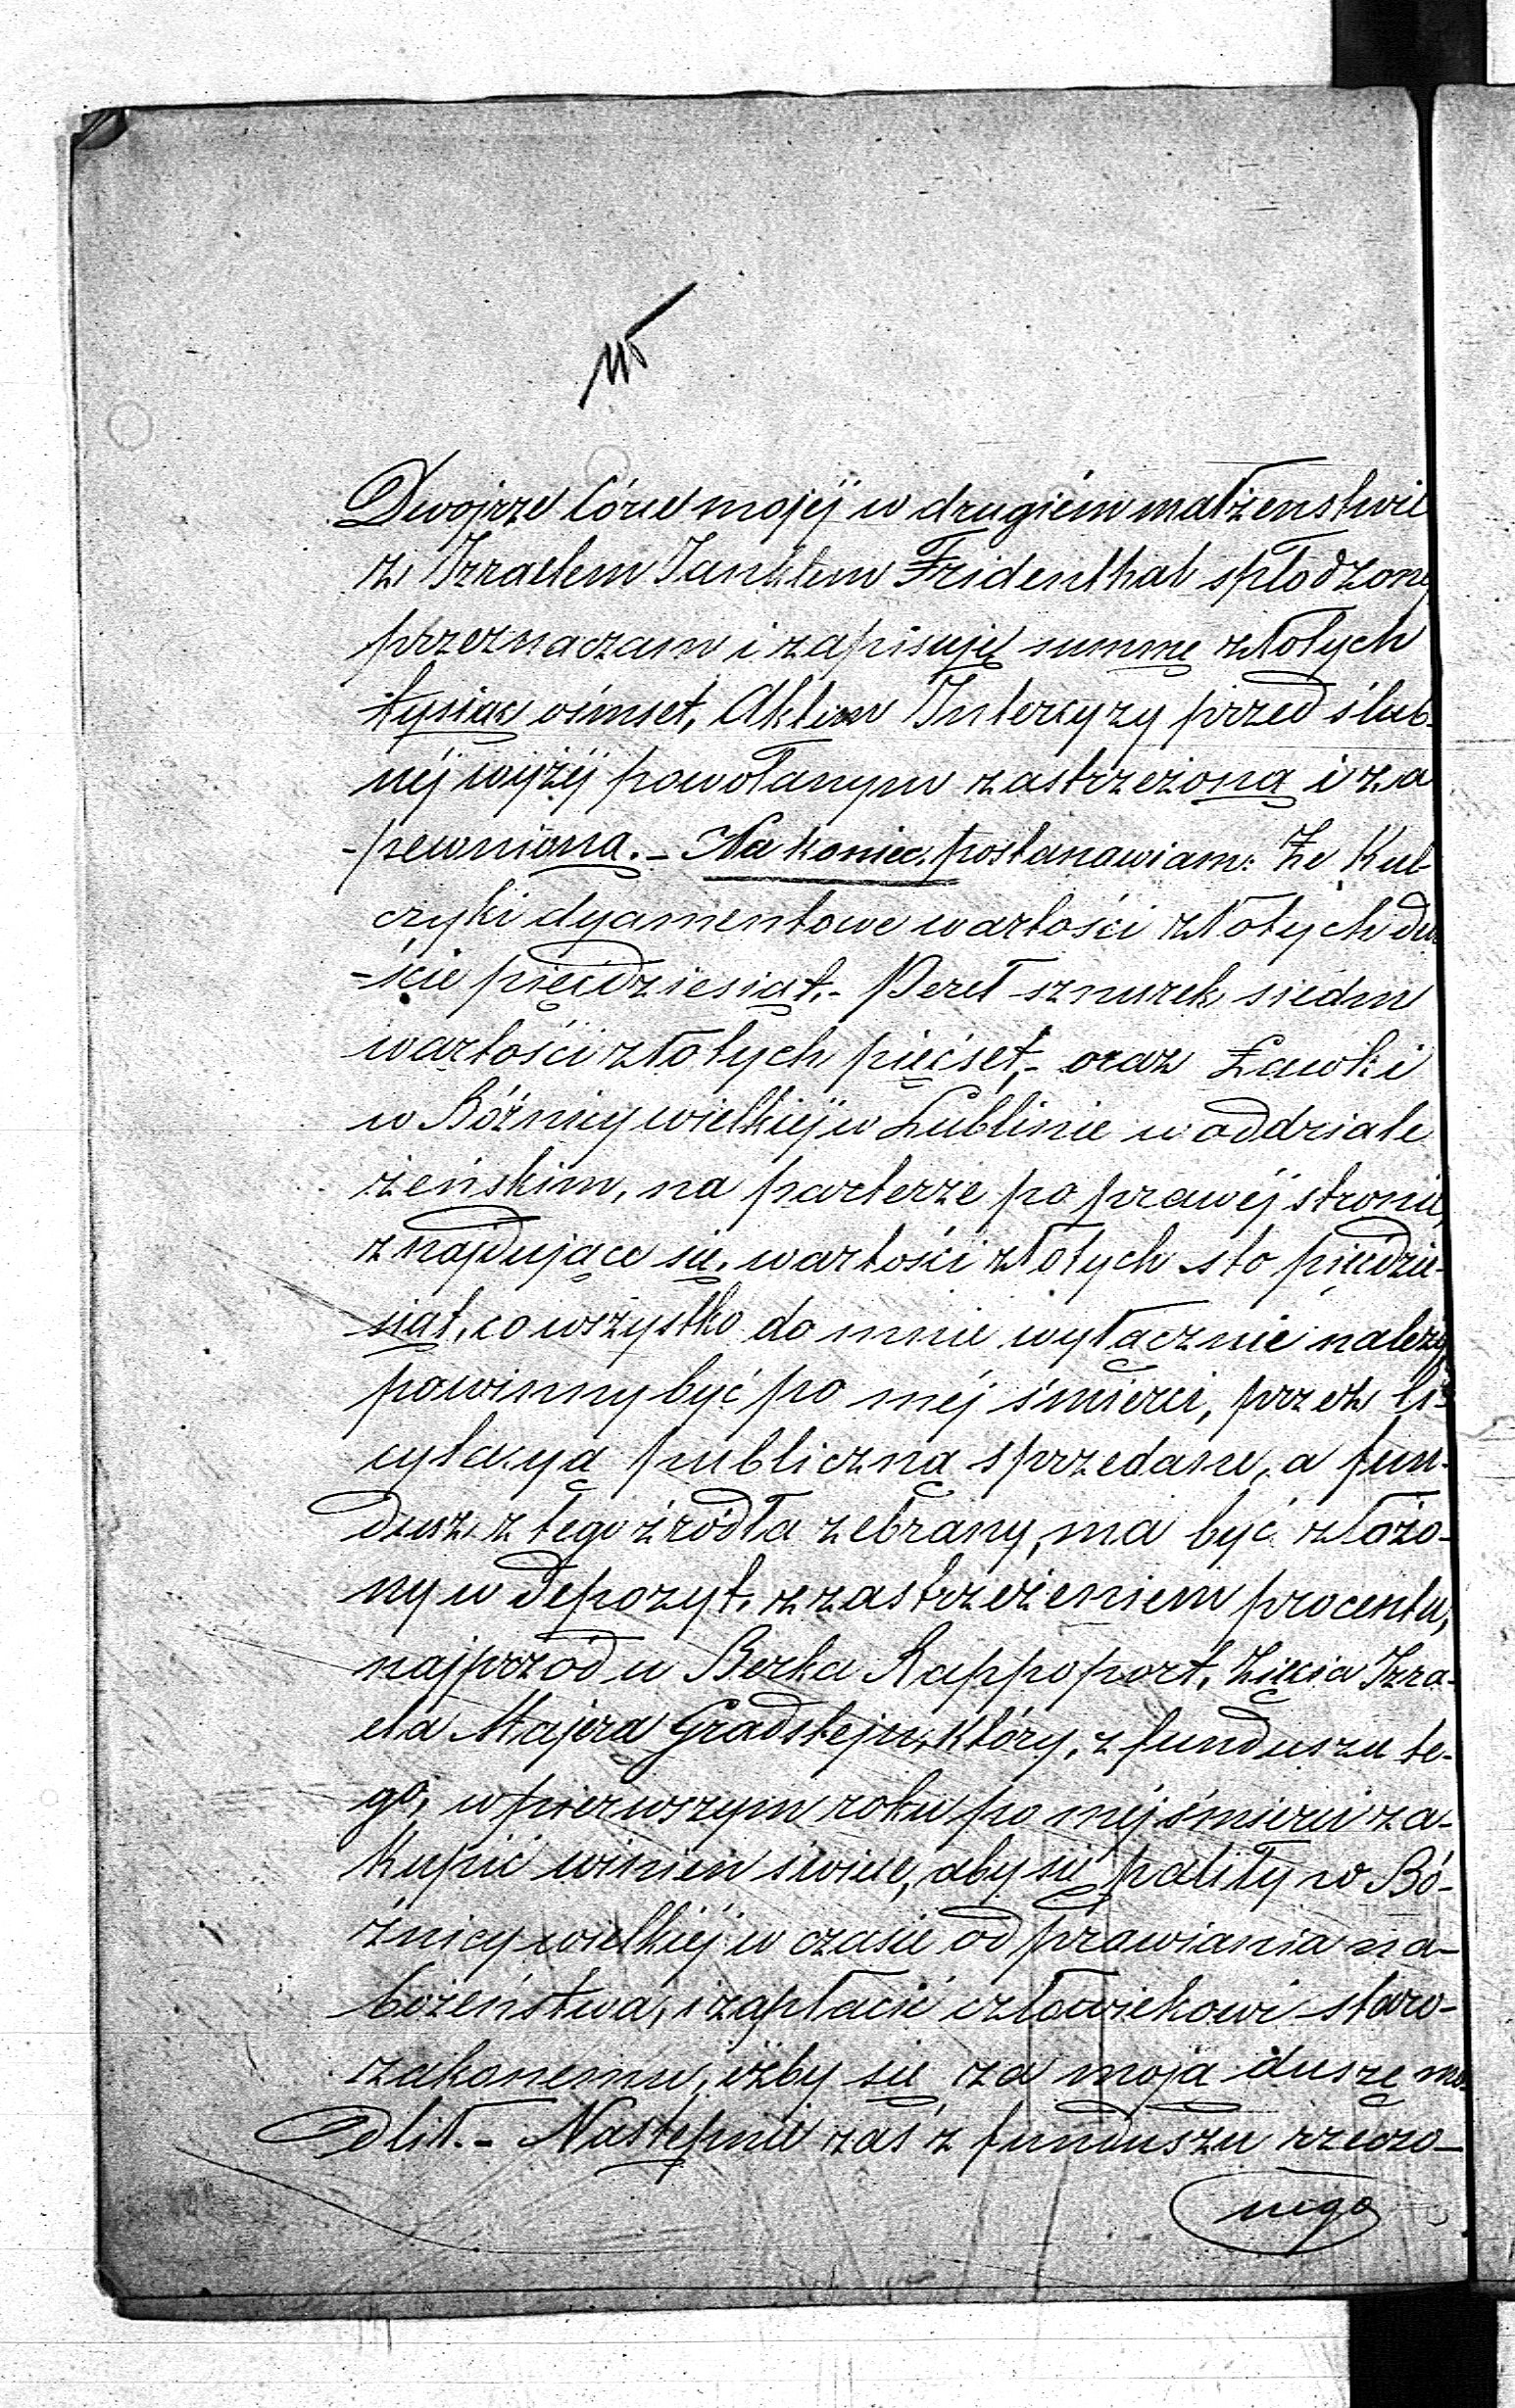 Dwojrze Córce mojéj w drugiém małżeństwie
z Izraelem Janklem Fridenthal spłodzonéj
przeznaczam i zapisuję summę złotych
tysiąc ośmset, Aktem Intercyzy przed ślub-
néj wyżéj powołanym zastrzeżoną i za
-pewnioną.- Na koniec, postanawiam: Że Kul-
czyki dyamentowe wartości złotych dwi
-ście pięćdziesiąt.- Pereł sznurek siedm
wartości złotych pięćset,- oraz Ławki
w Bóżnicy wielkiéj w Lublinie w oddziale
żeńskim, na parterze po prawéj stronie,
znajdujące się, wartości złotych sto pięćdzie-
siąt, co wszystko do mnie wyłącznie należy
powinny być po méj śmierci, przez li-
cytacyą publiczną sprzedane, a fun-
dusz z tego źródła zebrany, ma być złożo-
ny w Depozyt, z zastrzeżeniem procentu,
najprzód u Berka Rappoport, Zięcia Izra-
ela Majera Gradsztejn, który, z funduszu te-
go, w pierwszym roku po méj śmierci za-
kupić winien świece, aby się paliły w Bó-
żnicy wielkiéj w czasie odprawiania na-
bożeństwa, i zapłacić człowiekowi staro-
zakonnemu, iżby się za moją duszę mo-
dlił.- Następnie zaś z funduszu rzeczo-
nego